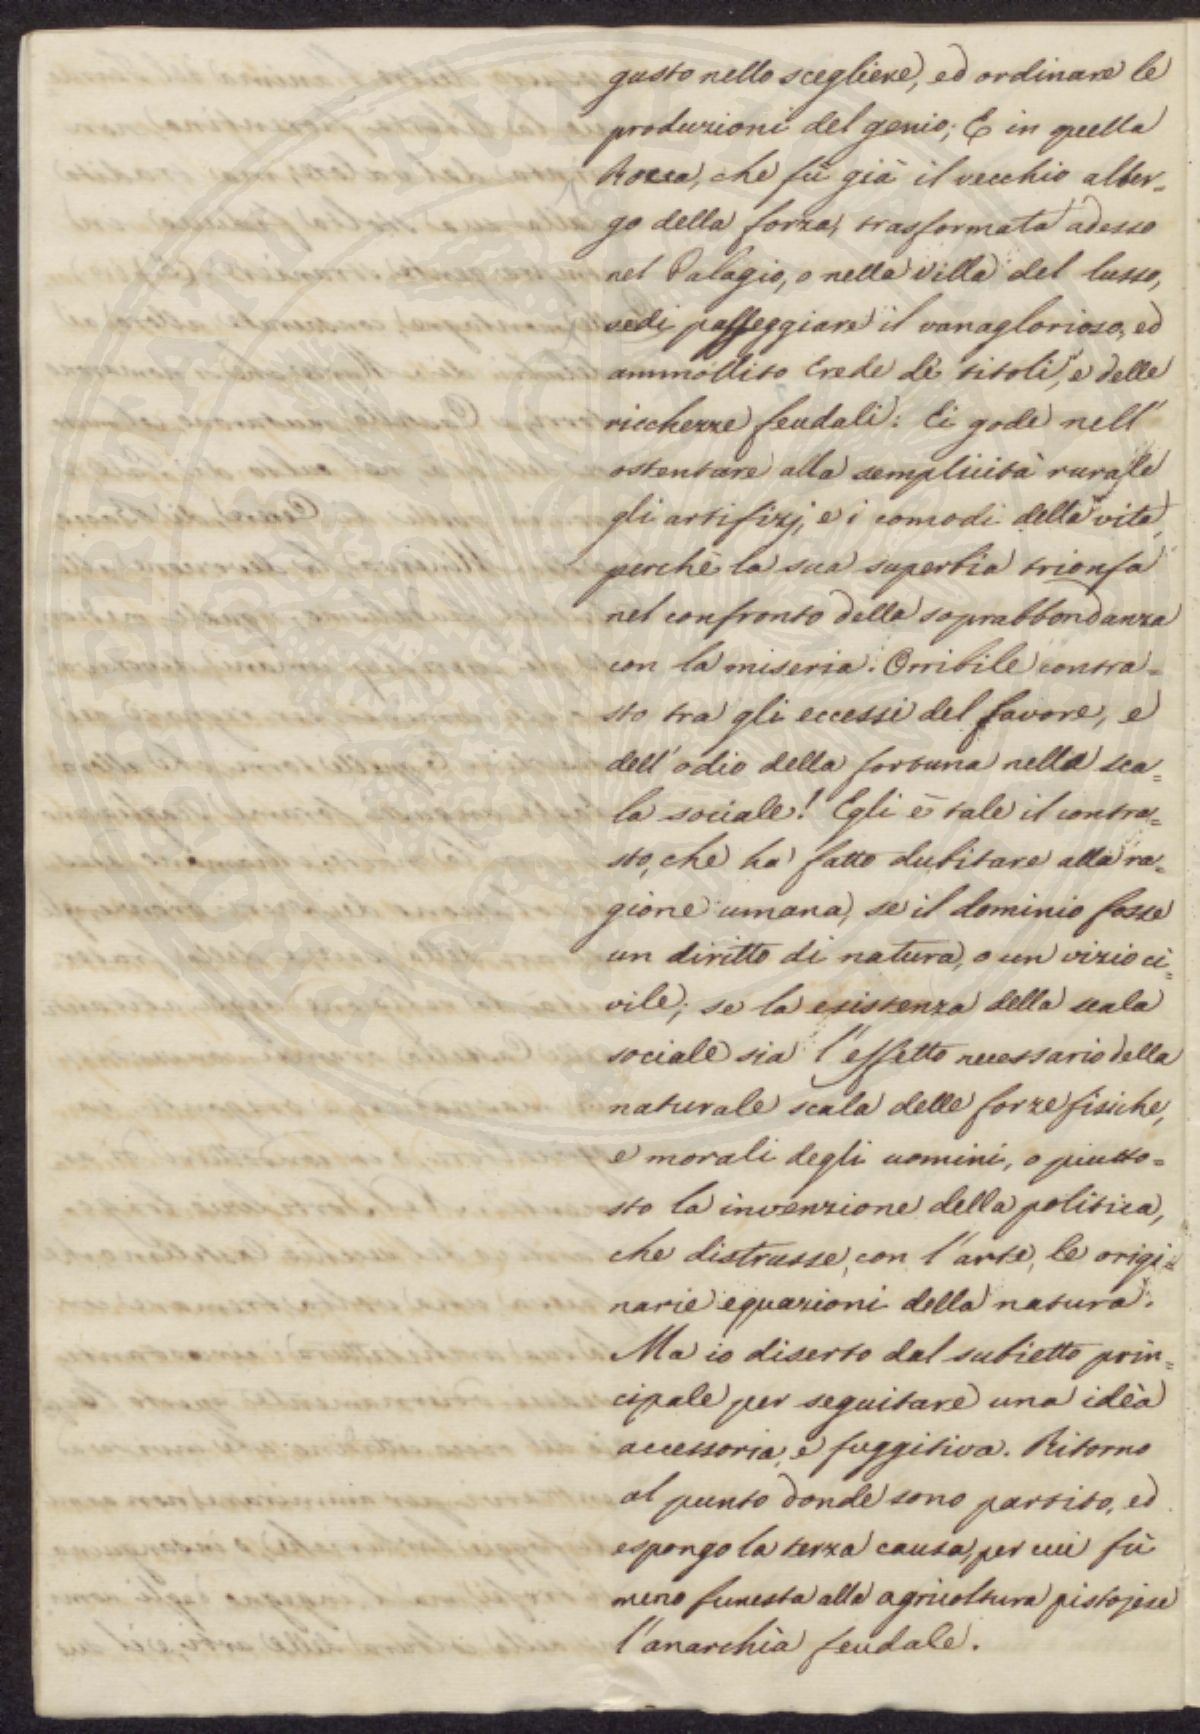 gusto nello scegliere, ed ordinare le
produzioni del genio; E in quella
Rocca, che fù già il vecchio alber=
go della forza, trasformata adesso
nel Palagio, o nella Villa del lusso,
vedi passeggiare il vanaglorioso, ed
ammollito Erede di titoli, e delle
ricchezze feudali: Ei gode nell'
ostentare alla semplicità rurale
gli artifizj, e i comodi della vita,
perchè la sua superbia trionfa
nel confronto della soprabbondanza
con la miseria. Orribile contra=
sto tra gli eccessi del favore, e
dell'odio della fortuna nella sca=
la sociale! Egli è tale il contra=
sto, che ha fatto dubitare alla ra=
gione umana, se il dominio fosse
un diritto di natura, o un vizio ci=
vile; se la esistenza della scala
sociale sia l'effetto necessario della
naturale scala delle forze fisiche,
e morali degli uomini, o piutto=
sto la invenzione della politica,
che distrusse, con l'arte, le origi=
narie equazioni della natura.
Ma io diserto dal subietto prin=
cipale per seguitare una idèa
accessoria, e fuggitiva. Ritorno
al punto donde sono partito, ed
espongo la terza causa, per cui fù
meno funesta alla agricoltura pistojese
l'anarchìa feudale.